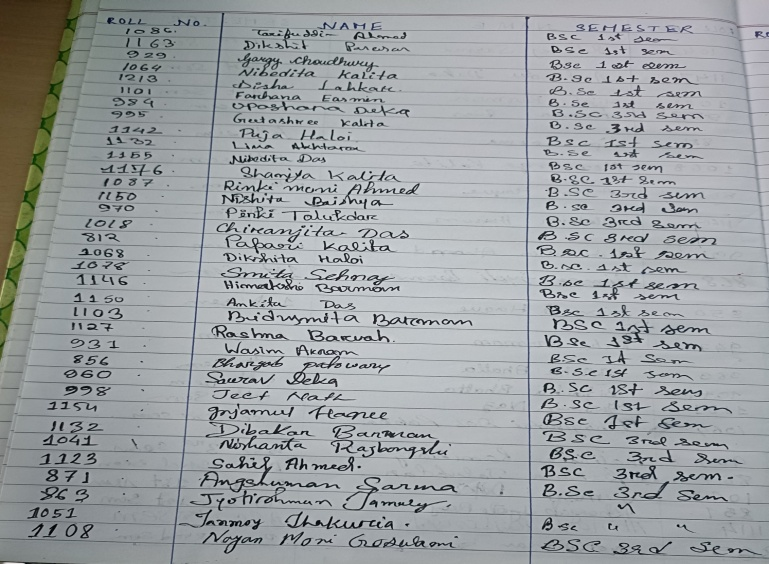 ROLL NO. NAME SEMESTER
1086. Ahmed BSC 1st Sem
1163 Dikshit BSC 1st sem
929 Gargy Choudhury Bsc 1st sem
1064 Nibedita Kalita B.Sc 1st sem
1213 Disha Lahkar B.Sc 1st sem
1101 Farhana Easmin B.Sc 1st sem
984 Upashana Deka B.SC 3rd Sem
995 Geetashree Kalita B.Sc 3rd sem
1142 Puja Haloi BSC 1st sem
1132 Lima Akhtara B.Se sem
1155 Nibedita Das BSC 1st sem
1176 Kalita B.SC 1st Sem
1087 Rinki moni Ahmed B.SC 3rd sem
1150 Nishita Baishya B.sc 3rd Sem
970 Pinki Talukdar B.Sc 3rd Sem
1018 Chiranjita Das B.SC 3rd sem
812 Papori Kalita B.sc. 1st sem
1068 Dikshita Haloi B.sc. 1st sem
1078 Smita B.sc 1st sem
1146 Barman Bsc 1st sem
1150 Ankita Das Bsc 1st sem
1103 Bidusmita Barman BSC 1st sem
1127 Rashma Baruah. B Sc 1st sem
931 Wasim Akram BSC 1st Sem
856 Bhargab patowary B.Sc 1st sem
860 Saurav Deka B.SC 1st sem
998 Jeet Nath B.SC 1st Sem
1154 Injamul Haque Bsc 1st Sem
1132 Dibakar Barman BSC 3rd sem
1041 Nishanta Rajbongshi BSC 3rd Sem
1123 Sahil Ahmed. BSC 3rd sem.
871 Angshuman Sarma B.Sc 3rd Sem
863 "
1051 Tanmoy Thakuria. Bsc " "
1108 Nayan Moni Goswami BSC 3rd Sem